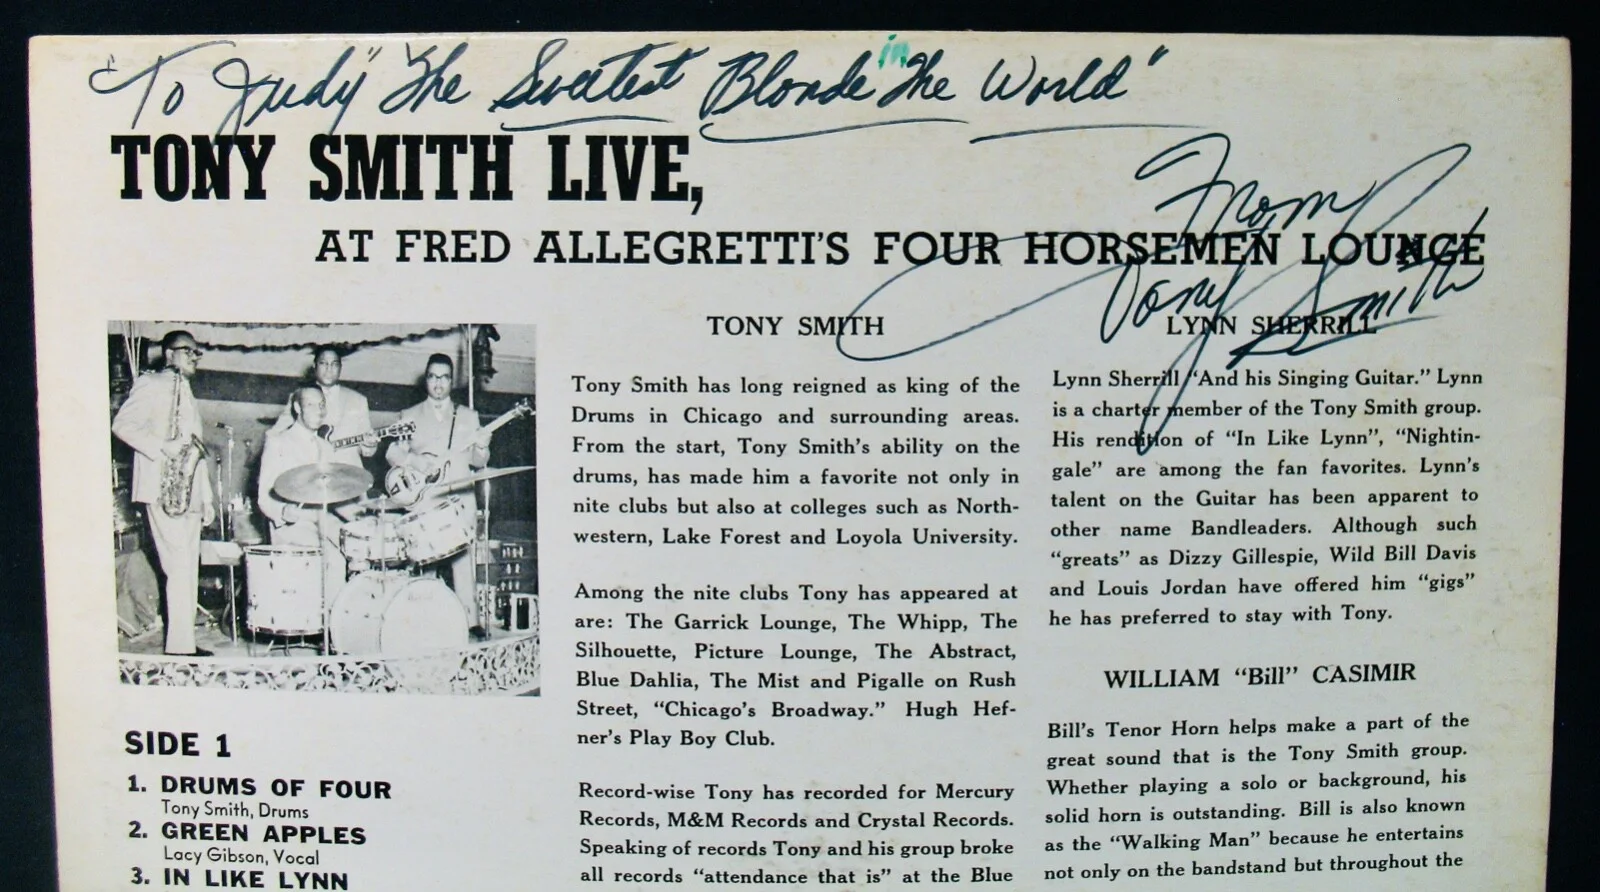 "To Judy" The Sweetest Blonde in The World"
From
Tony Smith
TONY SMITH LIVE,
AT FRED ALLEGRETTI'S FOUR HORSEMEN LOUNGE
SIDE 1
1. DRUMS OF FOUR
Tony Smith, Drums
2. GREEN APPLES
Lacy Gibson, Vocal
3. IN LIKE LYNN
TONY SMITH
Tony Smith has long reigned as king of the
Drums in Chicago and surrounding areas.
From the start, Tony Smith's ability on the
drums, has made him a favorite not only in
nite clubs but also at colleges such as North-
western, Lake Forest and Loyola University.
Among the nite clubs Tony has appeared at
are: The Garrick Lounge, The Whipp, The
Silhouette, Picture Lounge, The Abstract,
Blue Dahlia, The Mist and Pigalle on Rush
Street, "Chicago's Broadway." Hugh Hef-
ner's Play Boy Club.
Record-wise Tony has recorded for Mercury
Records, M&M Records and Crystal Records.
Speaking of records Tony and his group broke
all records "attendance that is" at the Blue
LYNN SHERRILL
Lynn Sherrill "And his Singing Guitar." Lynn
is a charter member of the Tony Smith group.
His rendition of "In Like Lynn", "Nightin-
gale" are among the fan favorites. Lynn's
talent on the Guitar has been apparent to
other name Bandleaders. Although such
"greats" as Dizzy Gillespie, Wild Bill Davis
and Louis Jordan have offered him "gigs"
he has preferred to stay with Tony.
WILLIAM "Bill" CASIMIR
Bill's Tenor Horn helps make a part of the
great sound that is the Tony Smith group.
Whether playing a solo or background, his
solid horn is outstanding. Bill is also known
as the "Walking Man" because he entertains
not only on the bandstand but throughout the